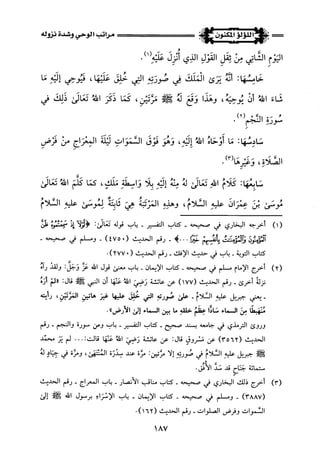 اللؤلؤ المكنون
مراتب الوحي وشدة نزوله
اليَوْمِ الشَّاتِي مِنْ ثِقَلِ القَوْلِ الذِي أُنْزِلَ عَلَيْهِ(١).
خَامِسُهَا: أَنَّهُ يَرَىٰ المَلَكَ فِي صُورَتِهِ التِي خُلِقَ عَلَيْهَا، فَيُوحِي إِلَيْهِ مَا
شَاءَ اللهُ أَنْ يُوحِيَهُ، وهَذَا وَقَعَ لَهُ ﷺ مَرَّتَيْنِ، كَمَا ذَكَرَ اللهُ تَعَالَىٰ ذَلِكَ فِي
سُورَةِ النَّجْمِ(٢).
سَادِسُهَا: مَا أَوْحَاهُ اللهُ إِلَيْهِ، وَهُوَ فَوْقَ السَّمَوَاتِ لَيْلَةَ المِعْرَاجِ مِنْ فَرْضِ
الصَّلَاةِ، وَغَيْرِهَا(٣).
سَابِعُهَا: كَلَامُ اللهِ تَعَالَىٰ لَهُ مِنْهُ إِلَيْهِ بِلَا وَاسِطَةِ مَلَكٍ، كَمَا كَلَّمَ اللهُ تَعَالَىٰ
مُوسَىٰ بْنَ عِمْرَانَ عَلَيْهِ السَّلَامُ، وهَذِهِ المَرْتَبَةُ هِيَ ثَابِتَةٌ لِمُوسَىٰ عَلَيْهِ السَّلَامُ
(١) أخرجه البخاري في صحيحه ـ كتاب التفسير ـ باب قوله تعالىٰ: ﴿لَوْلَا إِذْ سَمِعْتُمُوهُ ظَنَّ
الْمُؤْمِنُونَ وَالْمُؤْمِنَاتُ بِأَنفُسِهِمْ خَيْرًا...﴾ ـ رقم الحديث (٤٧٥٠) ـ ومسلم في صحيحه ـ
كتاب التوبة ـ باب في حديث الإفك ـ رقم الحديث (٢٧٧٠).
(٢) أخرج الإمام مسلم في صحيحه ـ كتاب الإيمان ـ باب معنىٰ قول الله عَزَّ وَجَلَّ: ولقد رآهُ
نزلةً أخرىٰ ـ رقم الحديث (١٧٧) عن عائشة رَضِيَ اللهُ عَنْهَا أن النبي ﷺ قال: «لم أرَهُ
ـ يعني جبريل عليه السَّلام ـ على صُورته التي خُلِقَ عليها غيرَ هاتين المَرَّتَيْنِ، رأيته
مُنْهَبِطًا مِنَ السماء سَادًّا عِظَمُ خلقِهِ ما بين السماء إلى الأرض».
وروىٰ الترمذي في جامعه بسند صحيح ـ كتاب التفسير ـ باب ومن سورة والنجم ـ رقم
الحديث (٣٥٦٢) عن مَسْروق عن عائشة رَضِيَ اللهُ عَنْهَا قالت:... لم يَرَ مُحمد
ﷺ جبريل عليه السَّلام في صُورتِهِ إلا مرتين: مرَّة عند سِدْرَة المُنْتَهَىٰ، ومرَّة في جِيَادٍ لهُ
ستمائة جَنَاح قد سَدَّ الأُفُق.
(٣) أخرج ذلك البخاري في صحيحه ـ كتاب مناقب الأنصار ـ باب المعراج ـ رقم الحديث
(٣٨٨٧) ـ ومسلم في صحيحه ـ كتاب الإيمان ـ باب الإسْرَاء برسول الله ﷺ إلىٰ
السموات وفرض الصلوات ـ رقم الحديث (١٦٢).
١٨٧